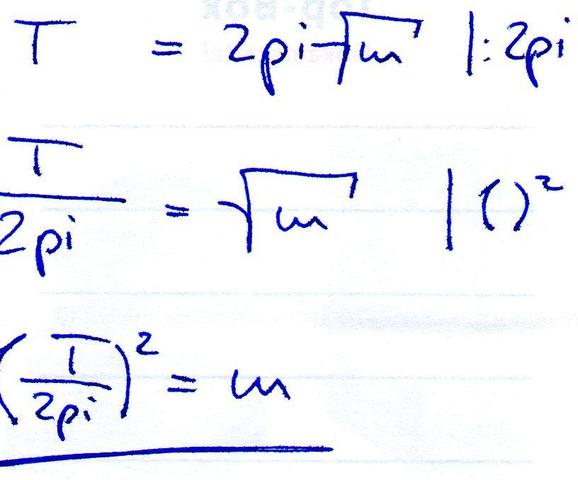 T = 2pi √m |: 2pi
T/2pi = √m | ()²
(T/2pi)² = m